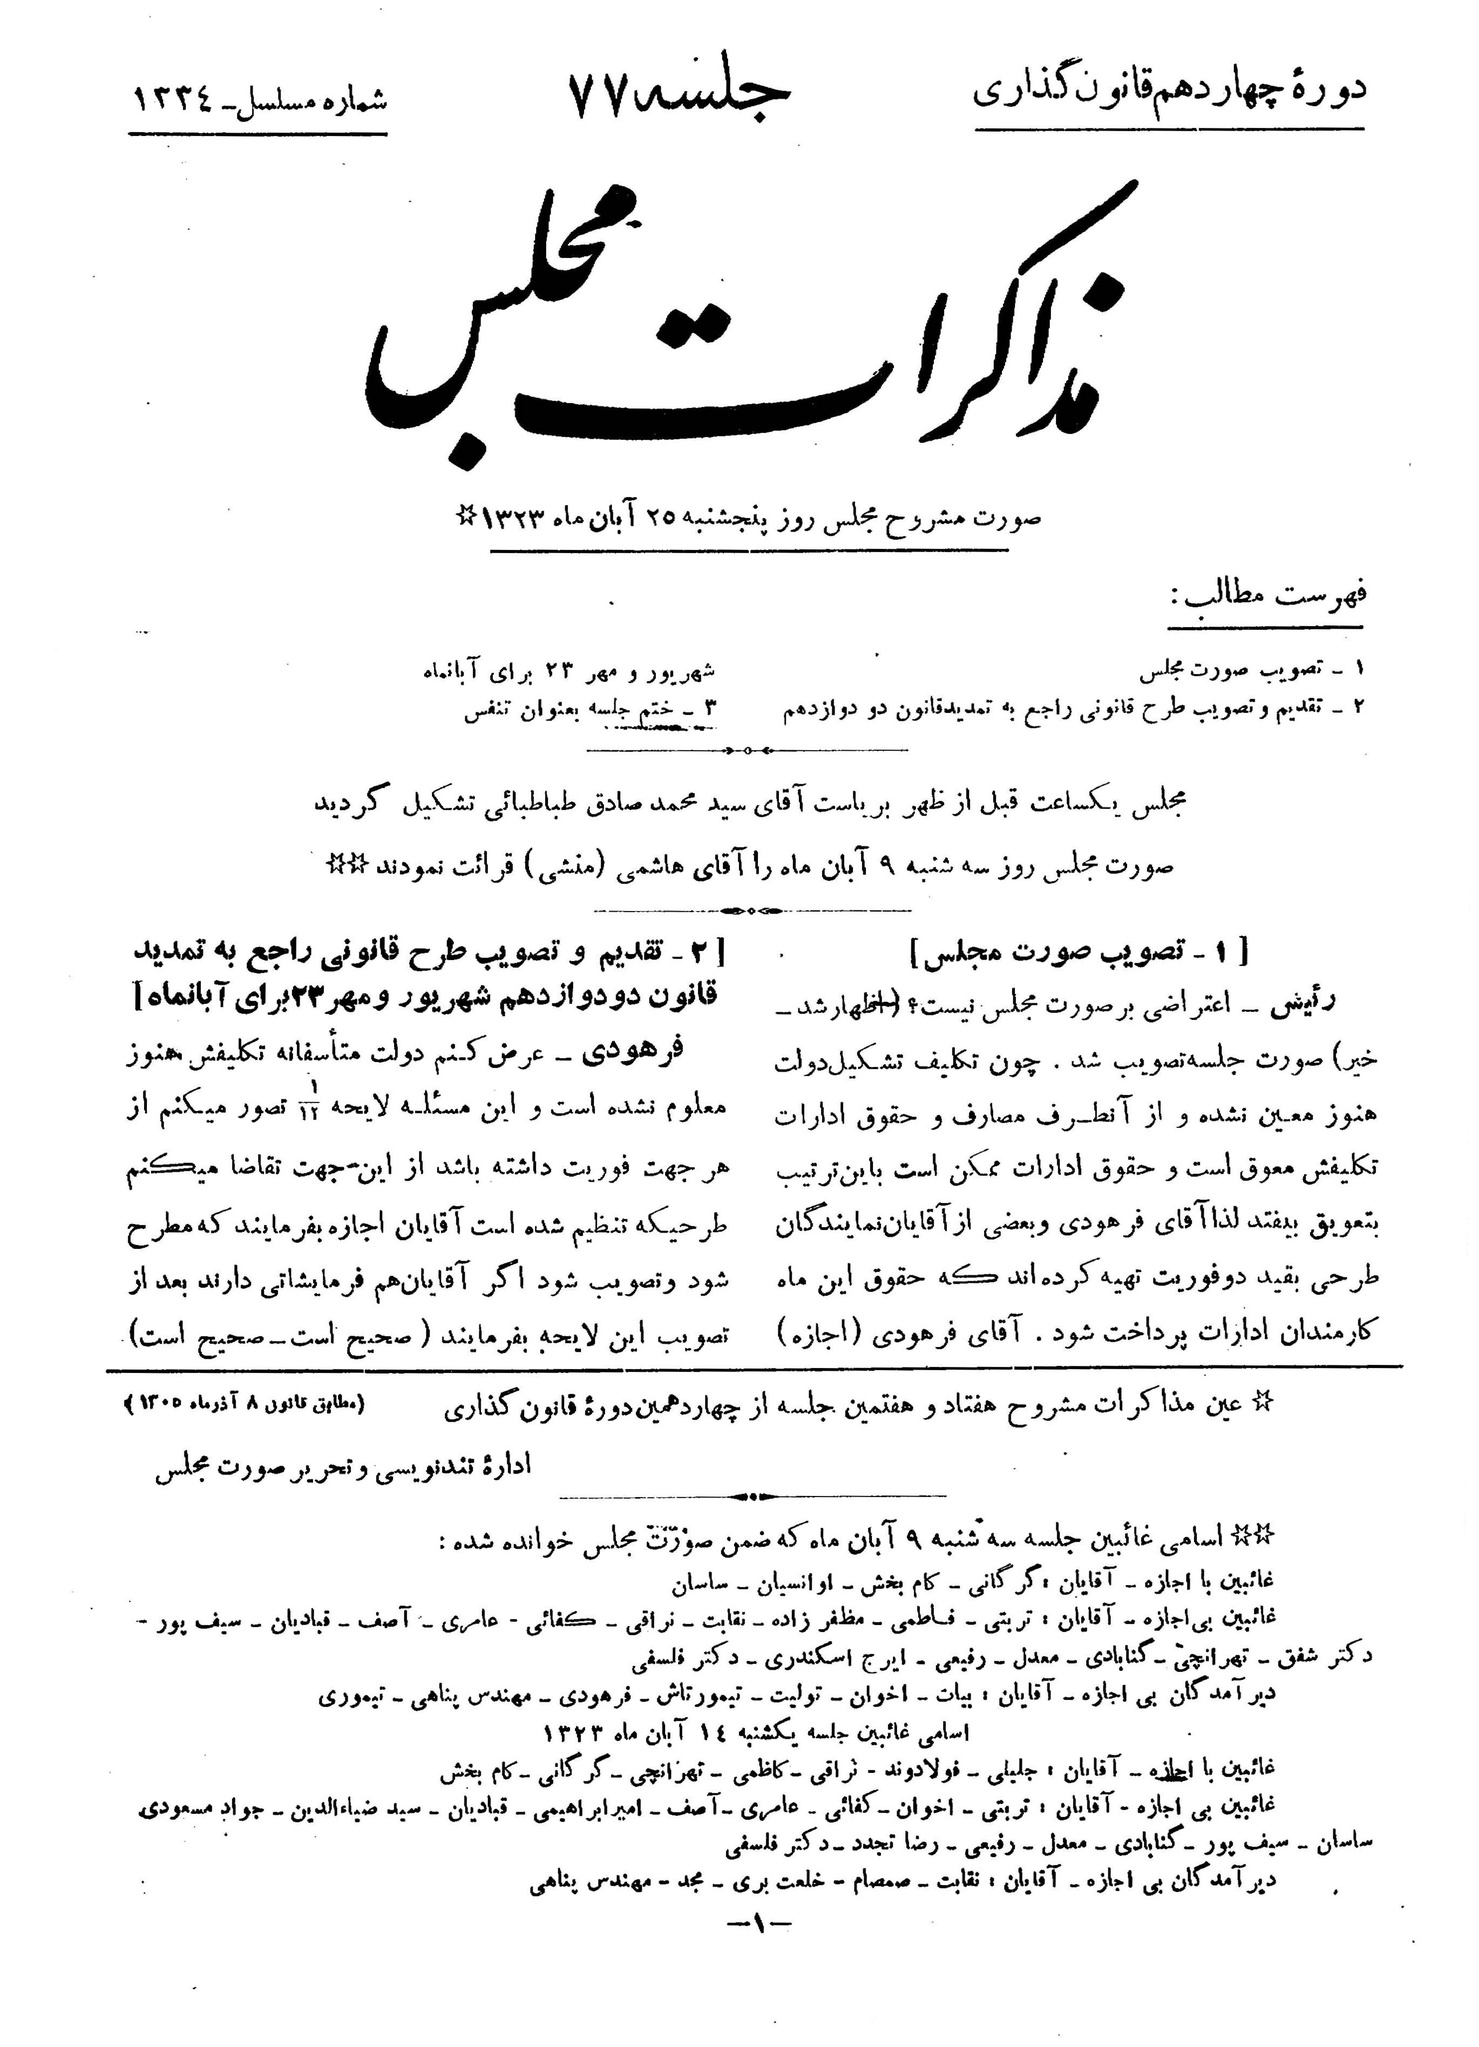 دورهٔ چهاردهم قانون گذاری
جلسه ۷۷
شماره مسلسل - ۱۳۳۴
مذاکرات مجلس
صورت مشروح مجلس روز پنجشنبه ۲۵ آبان ماه ۱۳۲۳ ☆
فهرست مطالب :
۱ - تصویب صورت مجلس
۲ - تقدیم و تصویب طرح قانونی راجع به تمدید قانون دو دوازدهم
شهریور و مهر ۲۳ برای آبانماه
۳ - ختم جلسه بعنوان تنفس
مجلس یکساعت قبل از ظهر بریاست آقای سید محمد صادق طباطبائی تشکیل گردید
صورت مجلس روز سه شنبه ۹ آبان ماه را آقای هاشمی (منشی) قرائت نمودند ☆☆
[ ۱ - تصویب صورت مجلس ]
رئیس - اعتراضی بر صورت مجلس نیست؟ (اظهار شد -
خیر) صورت جلسه تصویب شد . چون تکلیف تشکیل دولت
هنوز معین نشده و از آنطرف مصارف و حقوق ادارات
تکلیفش معوق است و حقوق ادارات ممکن است باین ترتیب
بتعویق بیفتد لذا آقای فرهودی و بعضی از آقایان نمایندگان
طرحی بقید دو فوریت تهیه کرده اند که حقوق این ماه
کارمندان ادارات پرداخت شود . آقای فرهودی (اجازه)
[ ۲ - تقدیم و تصویب طرح قانونی راجع به تمدید
قانون دو دوازدهم شهریور و مهر ۲۳ برای آبانماه ]
فرهودی - عرض کنم دولت متأسفانه تکلیفش هنوز
معلوم نشده است و این مسئله لایحه ۱/۱۲ تصور میکنم از
هر جهت فوریت داشته باشد از این جهت تقاضا میکنم
طرحیکه تنظیم شده است آقایان اجازه بفرمایند که مطرح
شود و تصویب شود اگر آقایان هم فرمایشاتی دارند بعد از
تصویب این لایحه بفرمایند ( صحیح است - صحیح است)
☆ عین مذاکرات مشروح هفتاد و هفتمین جلسه از چهاردهمین دورهٔ قانون گذاری (مطابق قانون ۸ آذر ماه ۱۳۰۵)
ادارهٔ تندنویسی و تحریر صورت مجلس
☆☆ اسامی غائبین جلسه سه شنبه ۹ آبان ماه که ضمن صورت مجلس خوانده شده :
غائبین با اجازه - آقایان : گرگانی - کام بخش - اوانسیان - ساسان
غائبین بی اجازه - آقایان : تربتی - فاطمی - مظفر زاده - نقابت - نراقی - کفائی - عامری - آصف - قبادیان - سیف پور -
دکتر شفق - تهرانچی - گنابادی - معدل - رفیعی - ایرج اسکندری - دکتر فلسفی
دیر آمدگان بی اجازه - آقایان : بیات - اخوان - تولیت - تیمورتاش - فرهودی - مهندس پناهی - تیموری
اسامی غائبین جلسه یکشنبه ۱۴ آبان ماه ۱۳۲۳
غائبین با اجازه - آقایان : جلیلی - فولادوند - نراقی - کاظمی - تهرانچی - گرگانی - کام بخش
غائبین بی اجازه - آقایان : تربتی - اخوان - کفائی - عامری - آصف - امیرابراهیمی - قبادیان - سید ضیاءالدین - جواد مسعودی
ساسان - سیف پور - گنابادی - معدل - رفیعی - رضا تجدد - دکتر فلسفی
دیر آمدگان بی اجازه - آقایان : نقابت - صمصام - خلعت بری - مجد - مهندس پناهی
-۱-